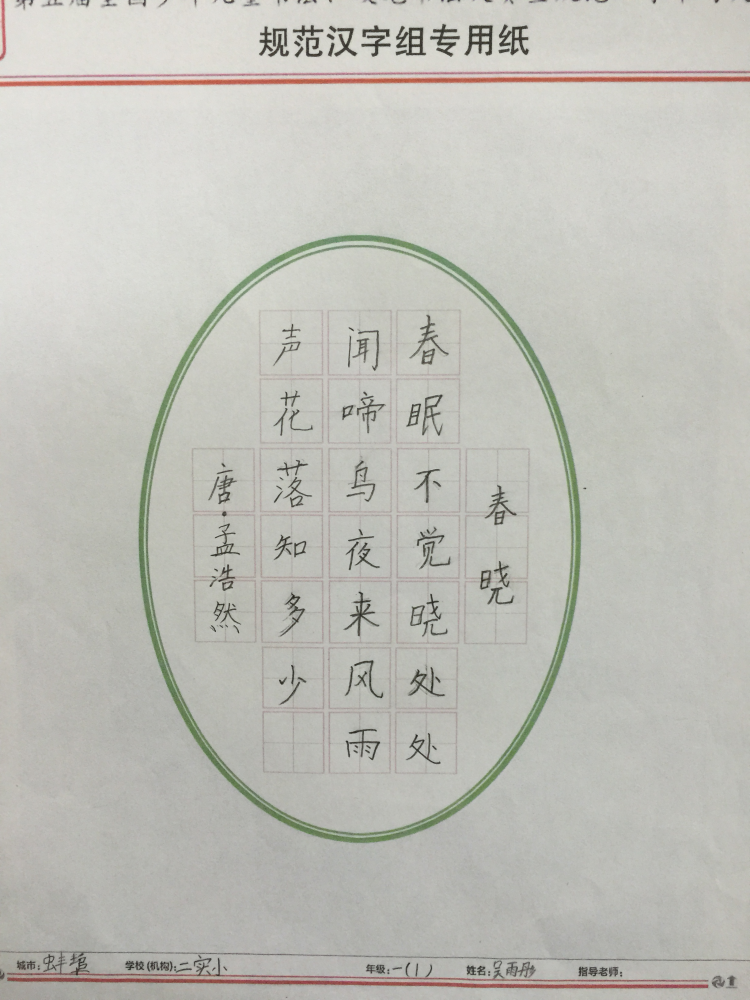 规范汉字组专用纸
春晓
春眠不觉晓处处
闻啼鸟夜来风雨
声花落知多少
唐·孟浩然
城市：蚌埠 学校(机构)：二实小 年级：一(1) 姓名：吴雨彤 指导老师：